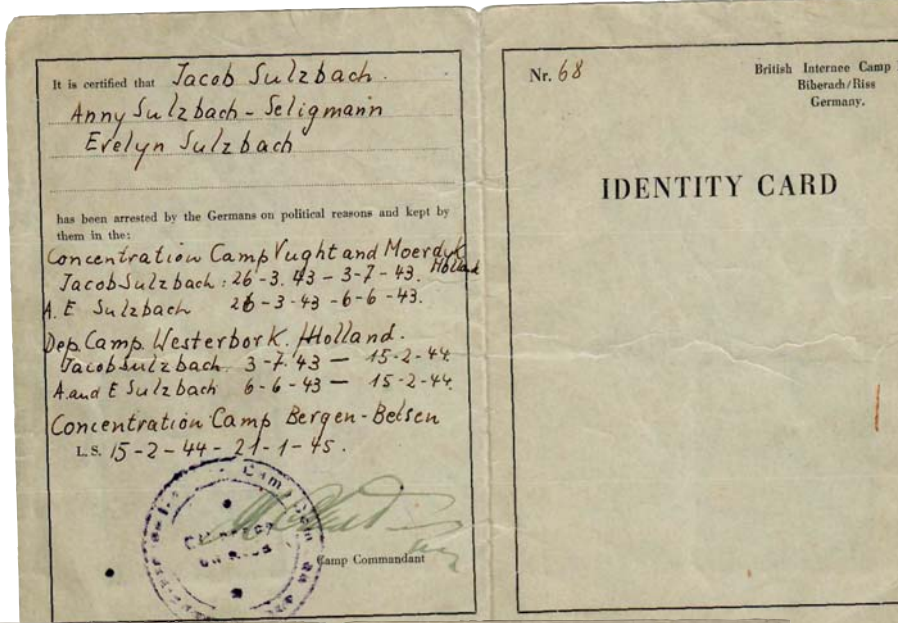 It is certified that Jacob Sulzbach.
Anny Sulzbach - Seligmann
Evelyn Sulzbach
has been arrested by the Germans on political reasons and kept by
them in the:
Concentration Camp Vught and Moerdyk
Holland
Jacob Sulzbach : 26-3. 43 - 3-7-43.
A. E Sulzbach 26-3-43 - 6-6-43.
Dep. Camp. Westerbork. Holland.
Jacob Sulzbach. 3-7.43 — 15-2-44.
A. and E Sulzbach 6-6-43 — 15-2-44.
Concentration Camp Bergen-Belsen
L.S. 15-2-44 - 21-1-45.
Camp Commandant
Nr. 68
British Internee Camp
Biberach/Riss
Germany.
IDENTITY CARD